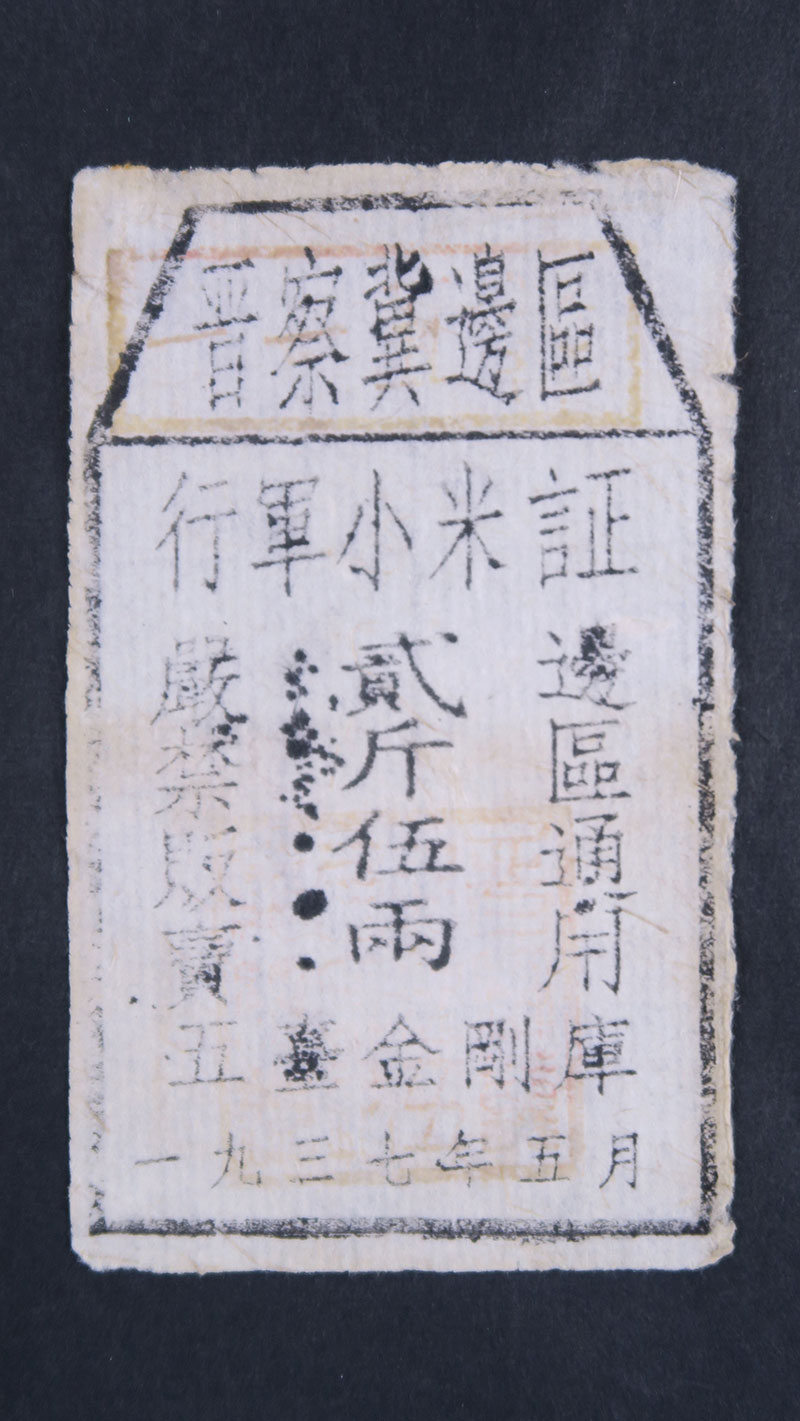 晋察冀邊區
行軍小米証
邊區通用
貳斤伍兩
嚴禁販賣
五臺金剛庫
一九三七年五月